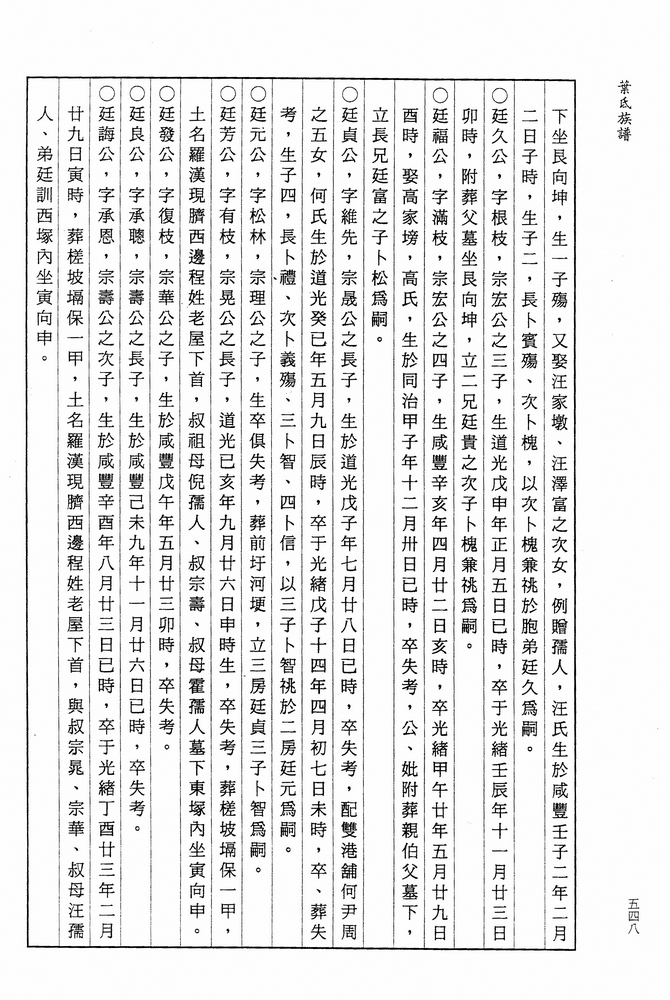 葉氏族譜
下坐艮向坤，生一子殤，又娶汪家墩、汪澤富之次女，例贈孺人，汪氏生於咸豐壬子二年二月
二日子時，生子二，長卜賓殤、次卜槐，以次卜槐兼祧於胞弟廷久爲嗣。
○廷久公，字根枝，宗宏公之三子，生道光戊申年正月五日巳時，卒于光緒壬辰年十一月廿三日
卯時，附葬父墓坐艮向坤，立二兄廷貴之次子卜槐兼祧爲嗣。
○廷福公，字滿枝，宗宏公之四子，生咸豐辛亥年四月廿二日亥時，卒光緒甲午廿年五月廿九日
酉時，娶高家塝，高氏，生於同治甲子年十二月卅日已時，卒失考，公、妣附葬親伯父墓下，
立長兄廷富之子卜松爲嗣。
○廷貞公，字維先，宗晟公之長子，生於道光戊子年七月廿八日已時，卒失考，配雙港舖何尹周
之五女，何氏生於道光癸巳年五月九日辰時，卒于光緒戊子十四年四月初七日未時，卒、葬失
考，生子四，長卜禮、次卜義殤、三卜智、四卜信，以三子卜智祧於二房廷元爲嗣。
○廷元公，字松林，宗理公之子，生卒俱失考，葬前圩河埂，立三房廷貞三子卜智爲嗣。
○廷芳公，字有枝，宗晃公之長子，道光已亥年九月廿六日申時生，卒失考，葬槎坡塥保一甲，
土名羅漢現臍西邊程姓老屋下首，叔祖母倪孺人、叔宗壽、叔母霍孺人墓下東塚內坐寅向申。
○廷發公，字復枝，宗華公之子，生於咸豐戊午年五月廿三卯時，卒失考。
○廷良公，字承聰，宗壽公之長子，生於咸豐己未九年十一月廿六日已時，卒失考。
○廷誨公，字承恩，宗壽公之次子，生於咸豐辛酉年八月廿三日已時，卒于光緒丁酉廿三年二月
廿九日寅時，葬槎坡塥保一甲，土名羅漢現臍西邊程姓老屋下首，與叔宗晃、宗華、叔母汪孺
人、弟廷訓西塚內坐寅向申。
五四八